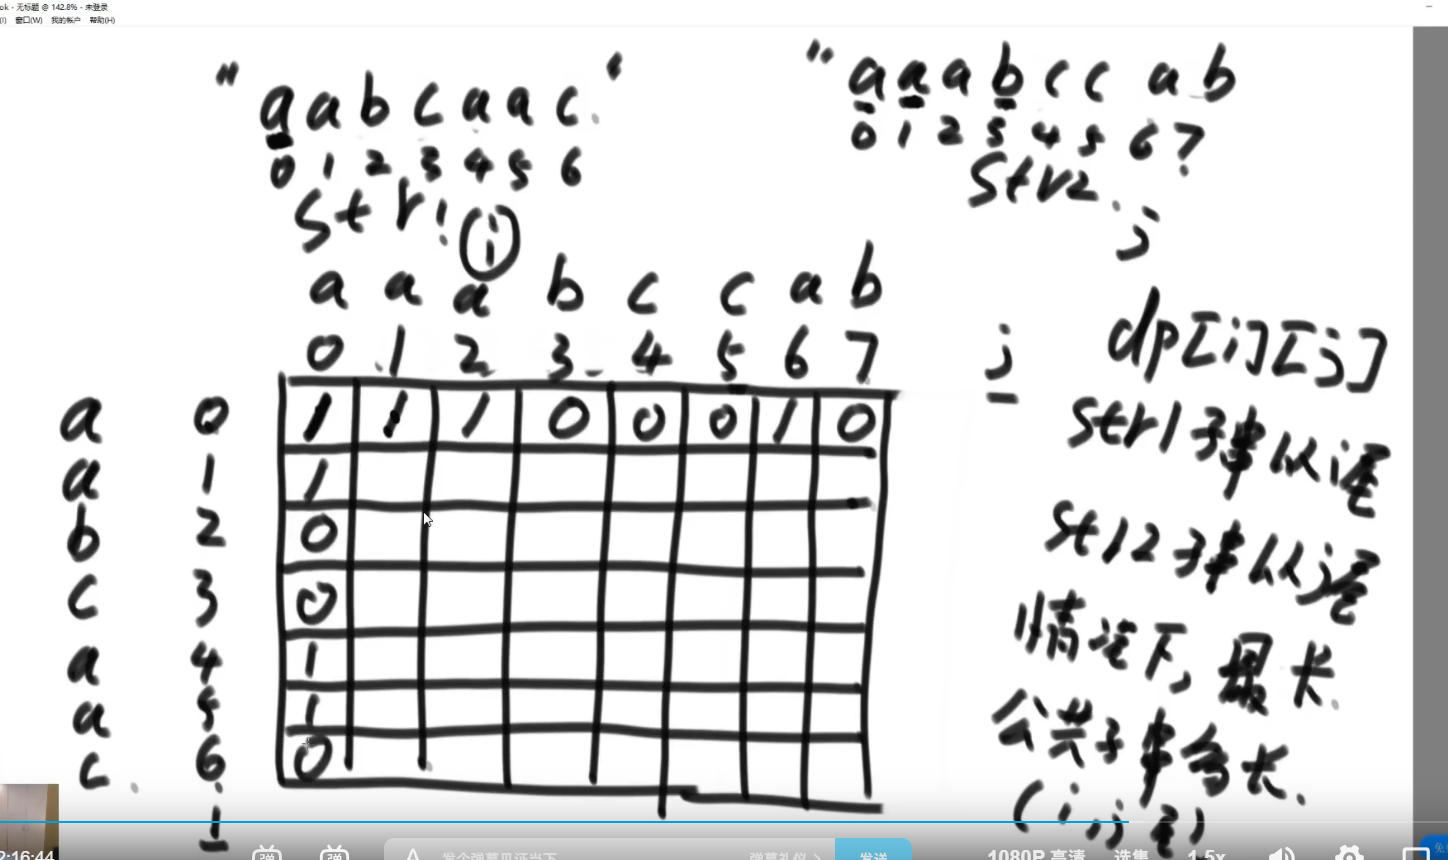 ok - 无标题 @ 142.8% - 未登录
(I) 窗口(W) 我的帐户 帮助(H)
" a a b c a a c. "
0 1 2 3 4 5 6
str1
i
" a a a b c c a b
0 1 2 3 4 5 6 7
str2.
j
a a a b c c a b
0 1 2 3 4 5 6 7 j
a 0 1 1 1 0 0 0 1 0
a 1 1
b 2 0
c 3 0
a 4 1
a 5 1
c. 6 0
i
dp[i][j]
str1子串以i尾
str2子串以j尾
情况下, 最长
公共子串多长.
(i,j尾)
2:16:44
弹
弹
A
发个弹幕见证当下
弹幕礼仪 >
发送
1080P 高清
选集
1.5x